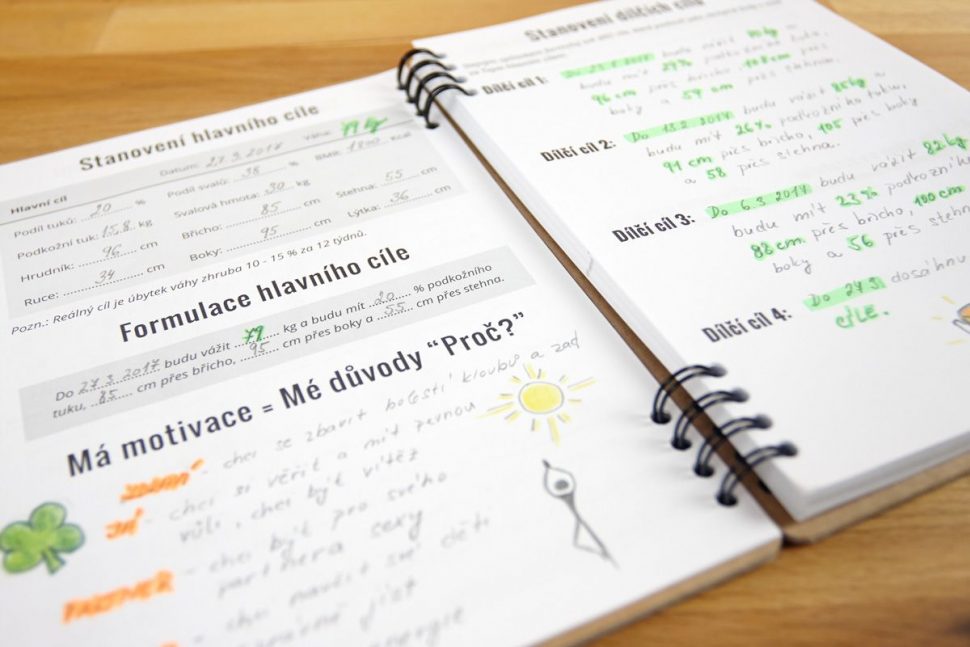 Stanovení hlavního cíle
Hlavní cíl
Datum: 27.3.2017
Váha: 79 kg
Podíl tuků: 20 %
Podíl svalů: 38 %
BMR: 1800 Kcal
Podkožní tuk: 15,8 kg
Svalová hmota: 30 kg
Stehna: 55 cm
Hrudník: 96 cm
Břicho: 85 cm
Lýtka: 36 cm
Ruce: 34 cm
Boky: 95 cm
Pozn.: Reálný cíl je úbytek váhy zhruba 10 - 15 % za 12 týdnů.
Formulace hlavního cíle
Do 27.3.2017 budu vážit 79 kg a budu mít 20 % podkožního
tuku, 85 cm přes břicho, 95 cm přes boky a 55 cm přes stehna.
Má motivace = Mé důvody “Proč?”
- chci se zbavit bolestí kloubů a zad
JÁ - chci si věřit a mít pevnou
vůli, chci být vítěz
PARTNER - chci být pro svého
partnera sexy
- chci naučit své děti
jíst
energie
Stanovení dílčích cílů
Dílčí cíl 1: budu vážit kg
budu mít 29% podkožního tuku,
96 cm přes břicho, 108 cm přes
boky a 59 cm přes stehna.
Dílčí cíl 2: Do 13.2.2017 budu vážit 85 kg a
budu mít 26% podkožního tuku,
91 cm přes břicho, 105 přes boky
a 58 přes stehna.
Dílčí cíl 3: Do 6.3.2017 budu vážit 82 kg
budu mít 23% podkožního
88 cm přes břicho, 100 cm
boky a 56 přes stehna
Dílčí cíl 4: Do 27.3. dosáhnu
cíle.